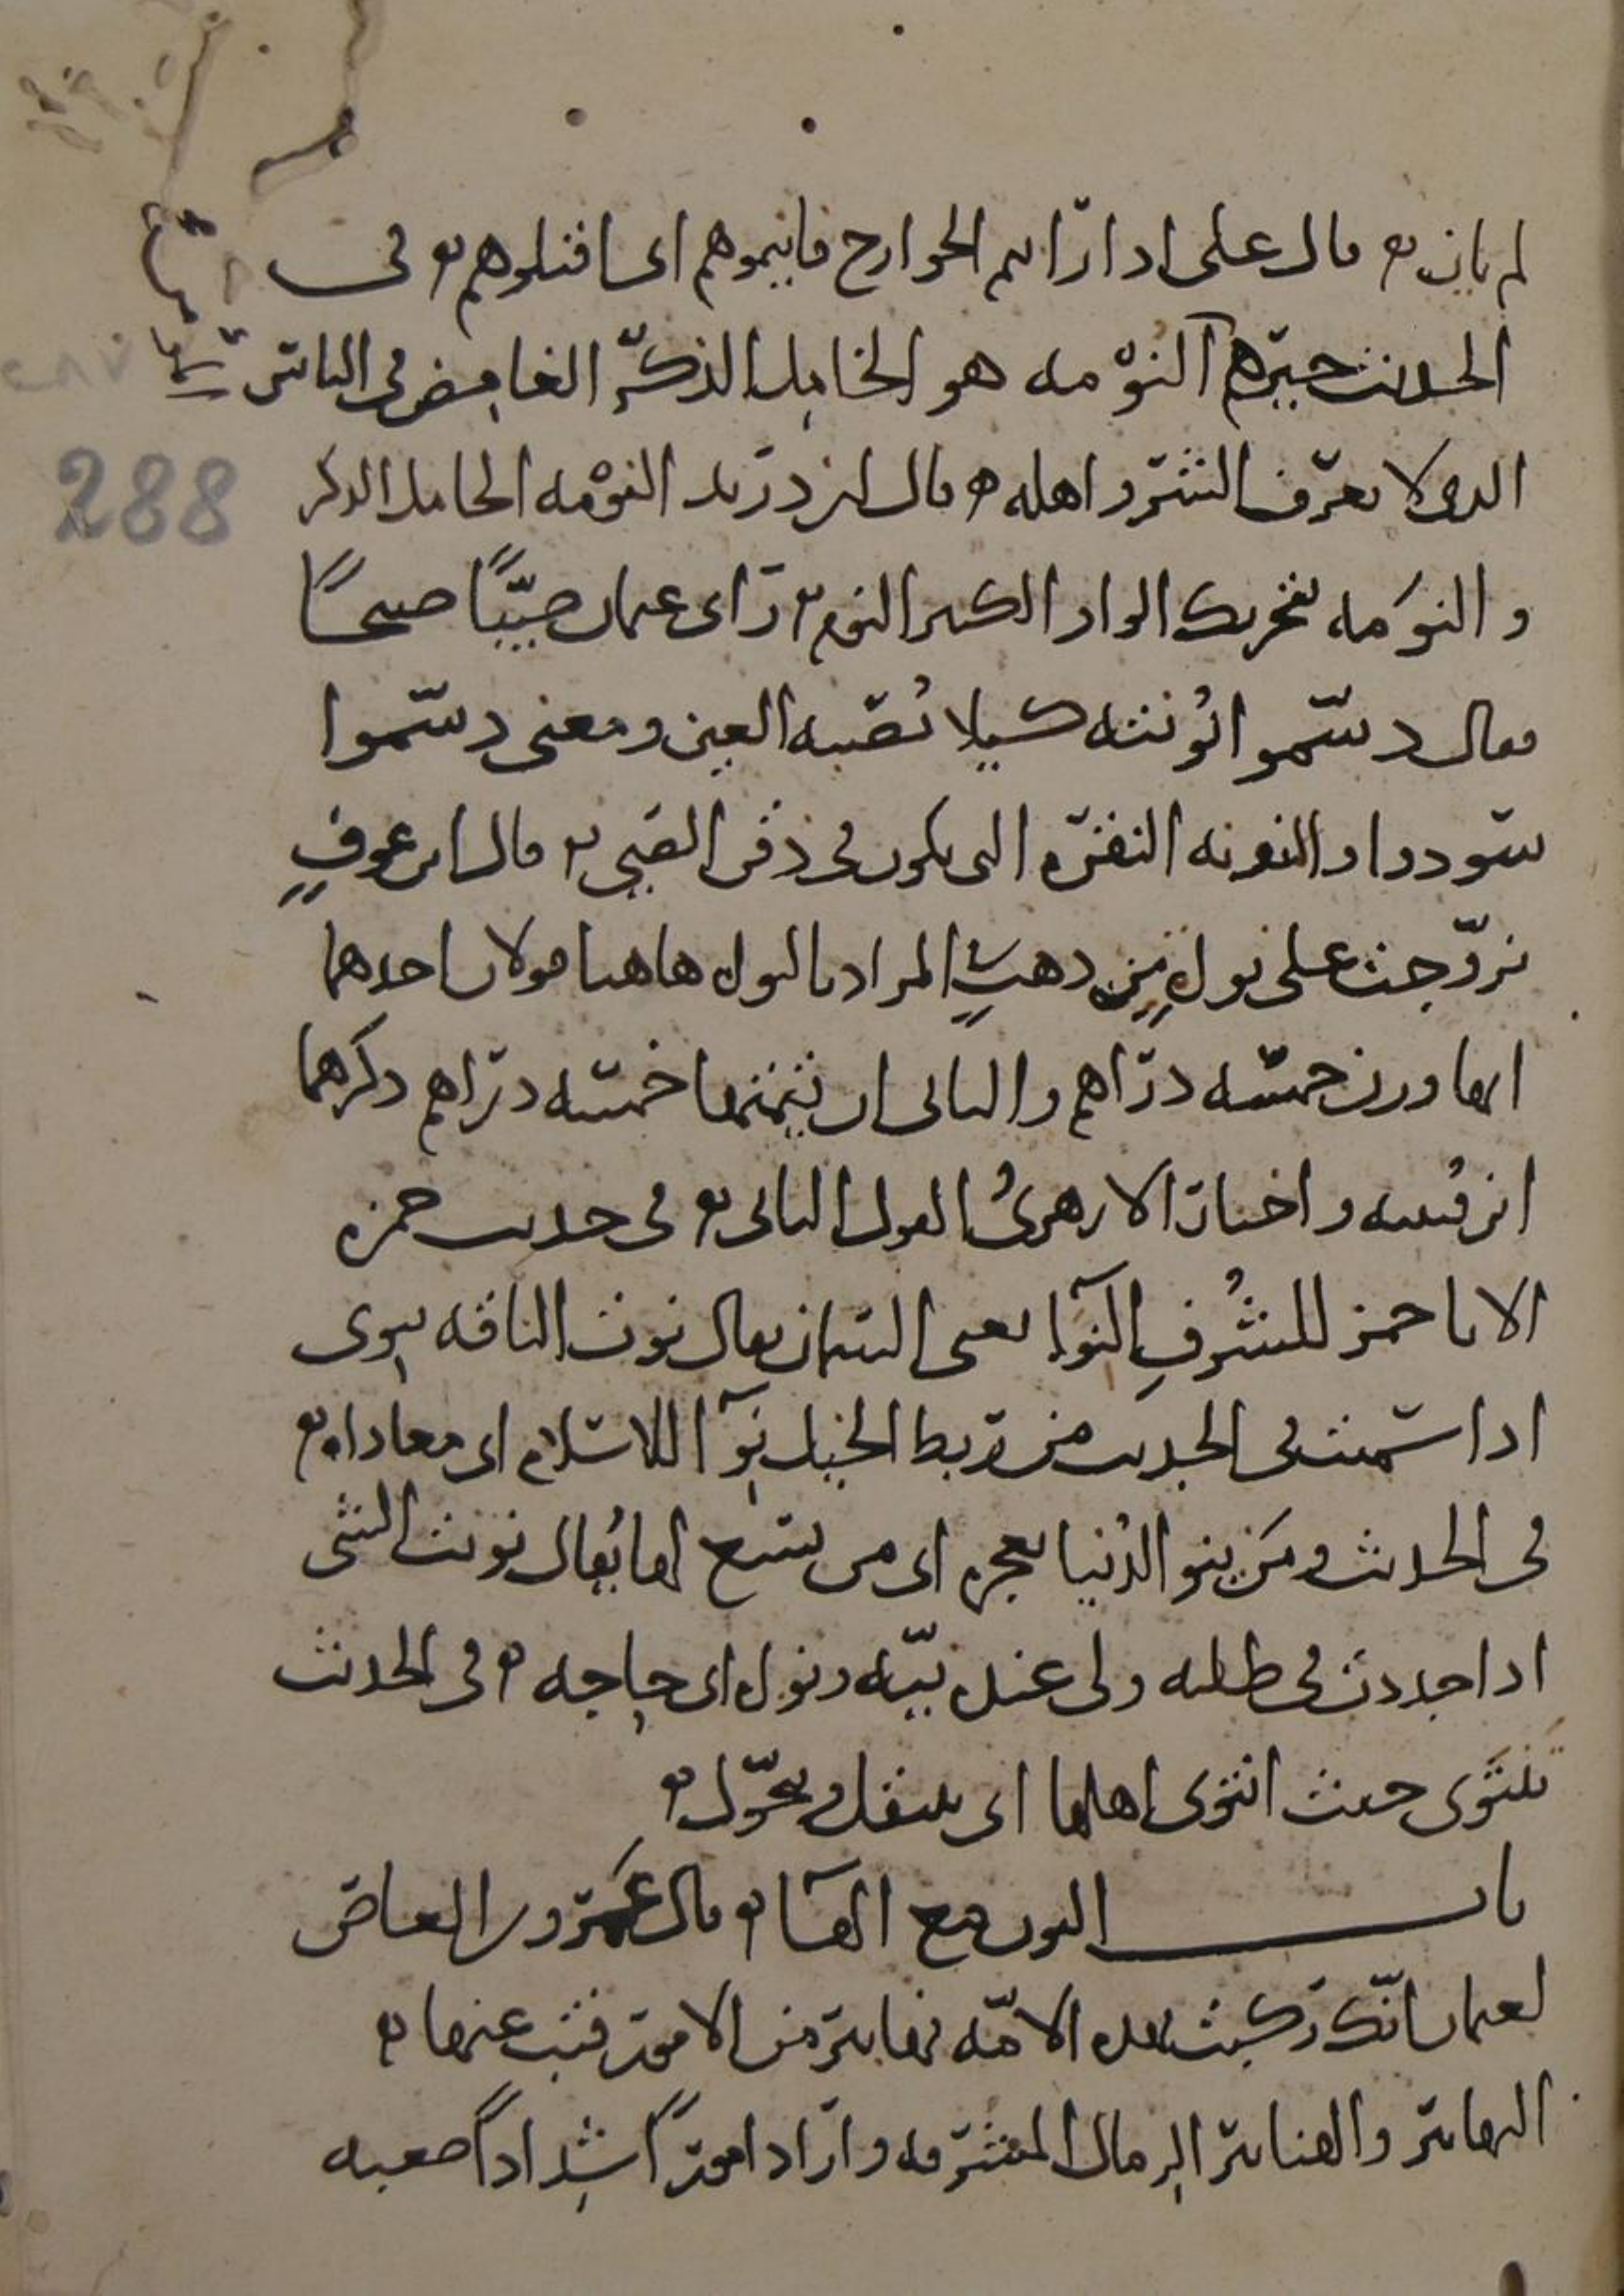 لم يأن قال علي اذا رايتم الخوارج فانيموهم اى اقتلوهم في
الحديث خيرهم النوْمه هو الخامل الذكر الغامض في الناس
288
الذى لا يعرف الشر واهله قال ابن دريد النوْمه الخامل الذكر
والنوَمه بتحريك الواو الكثير النوم راى عثمان صبيًا صبيحًا
فقال دسّموا نُونته كيلا تُصيبه العين ومعنى دسّموا
سودوا والنونه النقره التى تكون في ذقن الصبي قال ابن عوفٍ
تزوّجت على نواه مِن ذهبٍ المراد بالنواه هاهنا قولان احدهما
انها وزن خمسه دراهم والثانى ان ثمنها خمسه دراهم ذكرهما
ابن قتيبه واختار الازهرىُ القول الثانى في حديث حمزه
الا يا حمز للشُرفِ النوآء يعنى السمان يقال نوت الناقه تنوى
اذا سمنت في الحديث من ربط الخيل نِوآ للاسلام اى معاداه
في الحديث ومَن ينو الدُنيا تعجزه اى من يسع لها يُقال نويت الشى
اذا جددت في طلبه ولى عنده نيّه ونواه اى حاجه في الحديث
تَنتَوى حيث انتوى اهلها اى تنتقل وتتحوّل
باب النون مع الهآ قال عَمرو بن العاص
لعثمان انّك ركبت بهذه الامّه نهابير من الامور فتب عنها
النهابير والهنابير الرمال المشرفه واراد امورًا شِدادًا صعبه